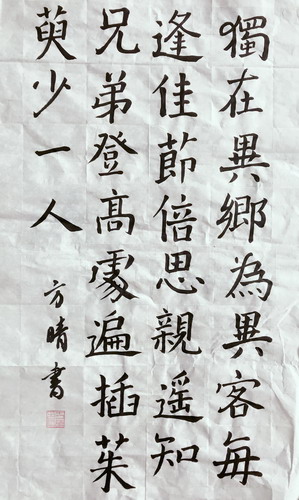 獨在異鄉為異客每
逢佳節倍思親遥知
兄弟登髙處遍插茱
萸少一人
方晴書